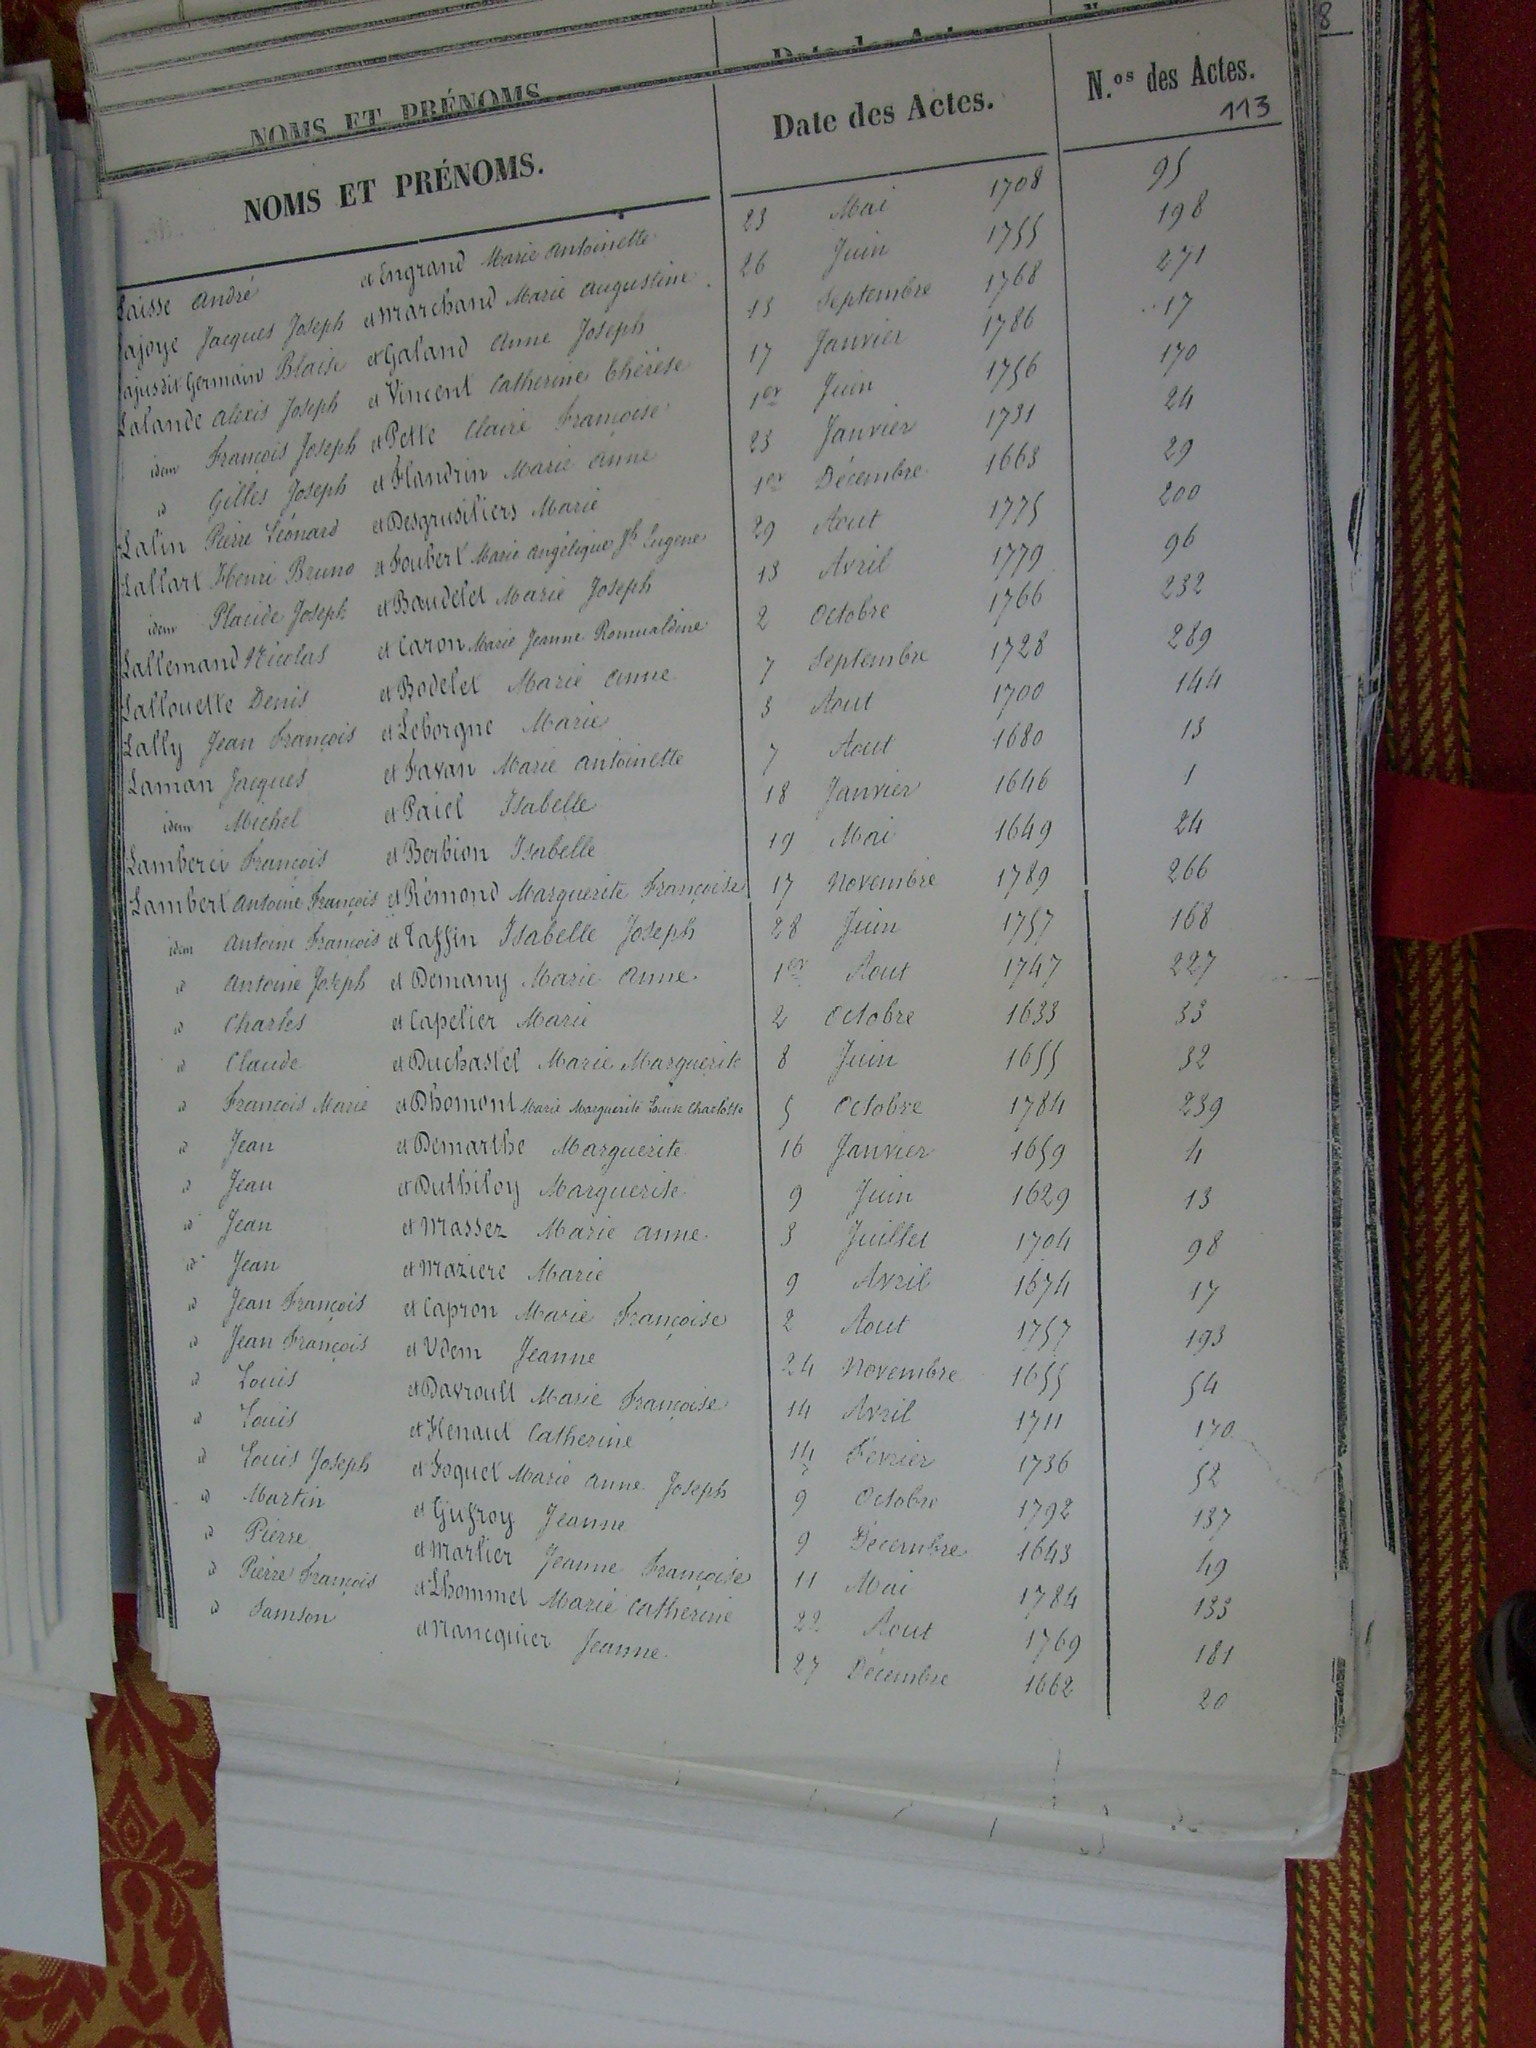 NOMS ET PRÉNOMS
Date des Actes
8
NOMS ET PRÉNOMS. Date des Actes. N.os des Actes.
113
Laisse André et Engrand Marie Antoinette 23 Mai 1708 95
Lajoye Jacques Joseph et Marchand Marie Augustine 26 Juin 1755 198
Lajus dit Germain Blaise et Galand Anne Joseph 15 Septembre 1768 271
Lalande Alexis Joseph et Vincent Catherine Thérèse 17 Janvier 1786 17
idem François Joseph et Pette Claire Françoise 1er Juin 1756 170
id Gilles Joseph et Flandrin Marie Anne 23 Janvier 1731 24
Lalin Pierre Léonard et Desgrusiliers Marie 1er Décembre 1663 29
Lallart Henri Bruno et Foubert Marie Angélique Jh Eugene 29 Aout 1775 200
idem Placide Joseph et Baudelet Marie Joseph 13 Avril 1779 96
Lallemand Nicolas et Caron Marie Jeanne Romualdine 2 Octobre 1766 232
Lallouette Denis et Bodelet Marie Anne 7 Septembre 1728 289
Lally Jean François et Leborgne Marie 3 Aout 1700 144
Laman Jacques et Favan Marie Antoinette 7 Aout 1680 13
idem Michel et Paiel Isabelle 18 Janvier 1646 1
Lamberci François et Berbion Isabelle 19 Mai 1649 24
Lambert Antoine François et Rémond Marguerite Françoise 17 Novembre 1789 266
idem Antoine François et Taffin Isabelle Joseph 28 Juin 1757 168
id Antoine Joseph et Demany Marie Anne 1er Aout 1747 227
id Charles et Capelier Marie 2 Octobre 1633 33
id Claude et Duchastel Marie Marguerite 8 Juin 1655 32
id François Marie et Dhomont Marie Marguerite Louise Charlotte 5 Octobre 1784 239
id Jean et Demarthe Marguerite 16 Janvier 1659 4
id Jean et Duthiloy Marguerite 9 Juin 1629 13
id Jean et Massez Marie Anne 3 Juillet 1704 98
id Jean et Maziere Marie 9 Avril 1674 17
id Jean François et Capron Marie Françoise 2 Aout 1757 193
id Jean François et Udem Jeanne 24 Novembre 1655 54
id Louis et Davroult Marie Françoise 14 Avril 1711 170
id Louis et Henaut Catherine 14 Fevrier 1736 52
id Louis Joseph et Foquet Marie Anne Joseph 9 Octobre 1792 137
id Martin et Gufroy Jeanne 9 Decembre 1643 49
id Pierre et Marlier Jeanne Françoise 11 Mai 1784 133
id Pierre François et Lhommel Marie Catherine 22 Aout 1769 181
id Samson et Mancquier Jeanne 27 Decembre 1662 20